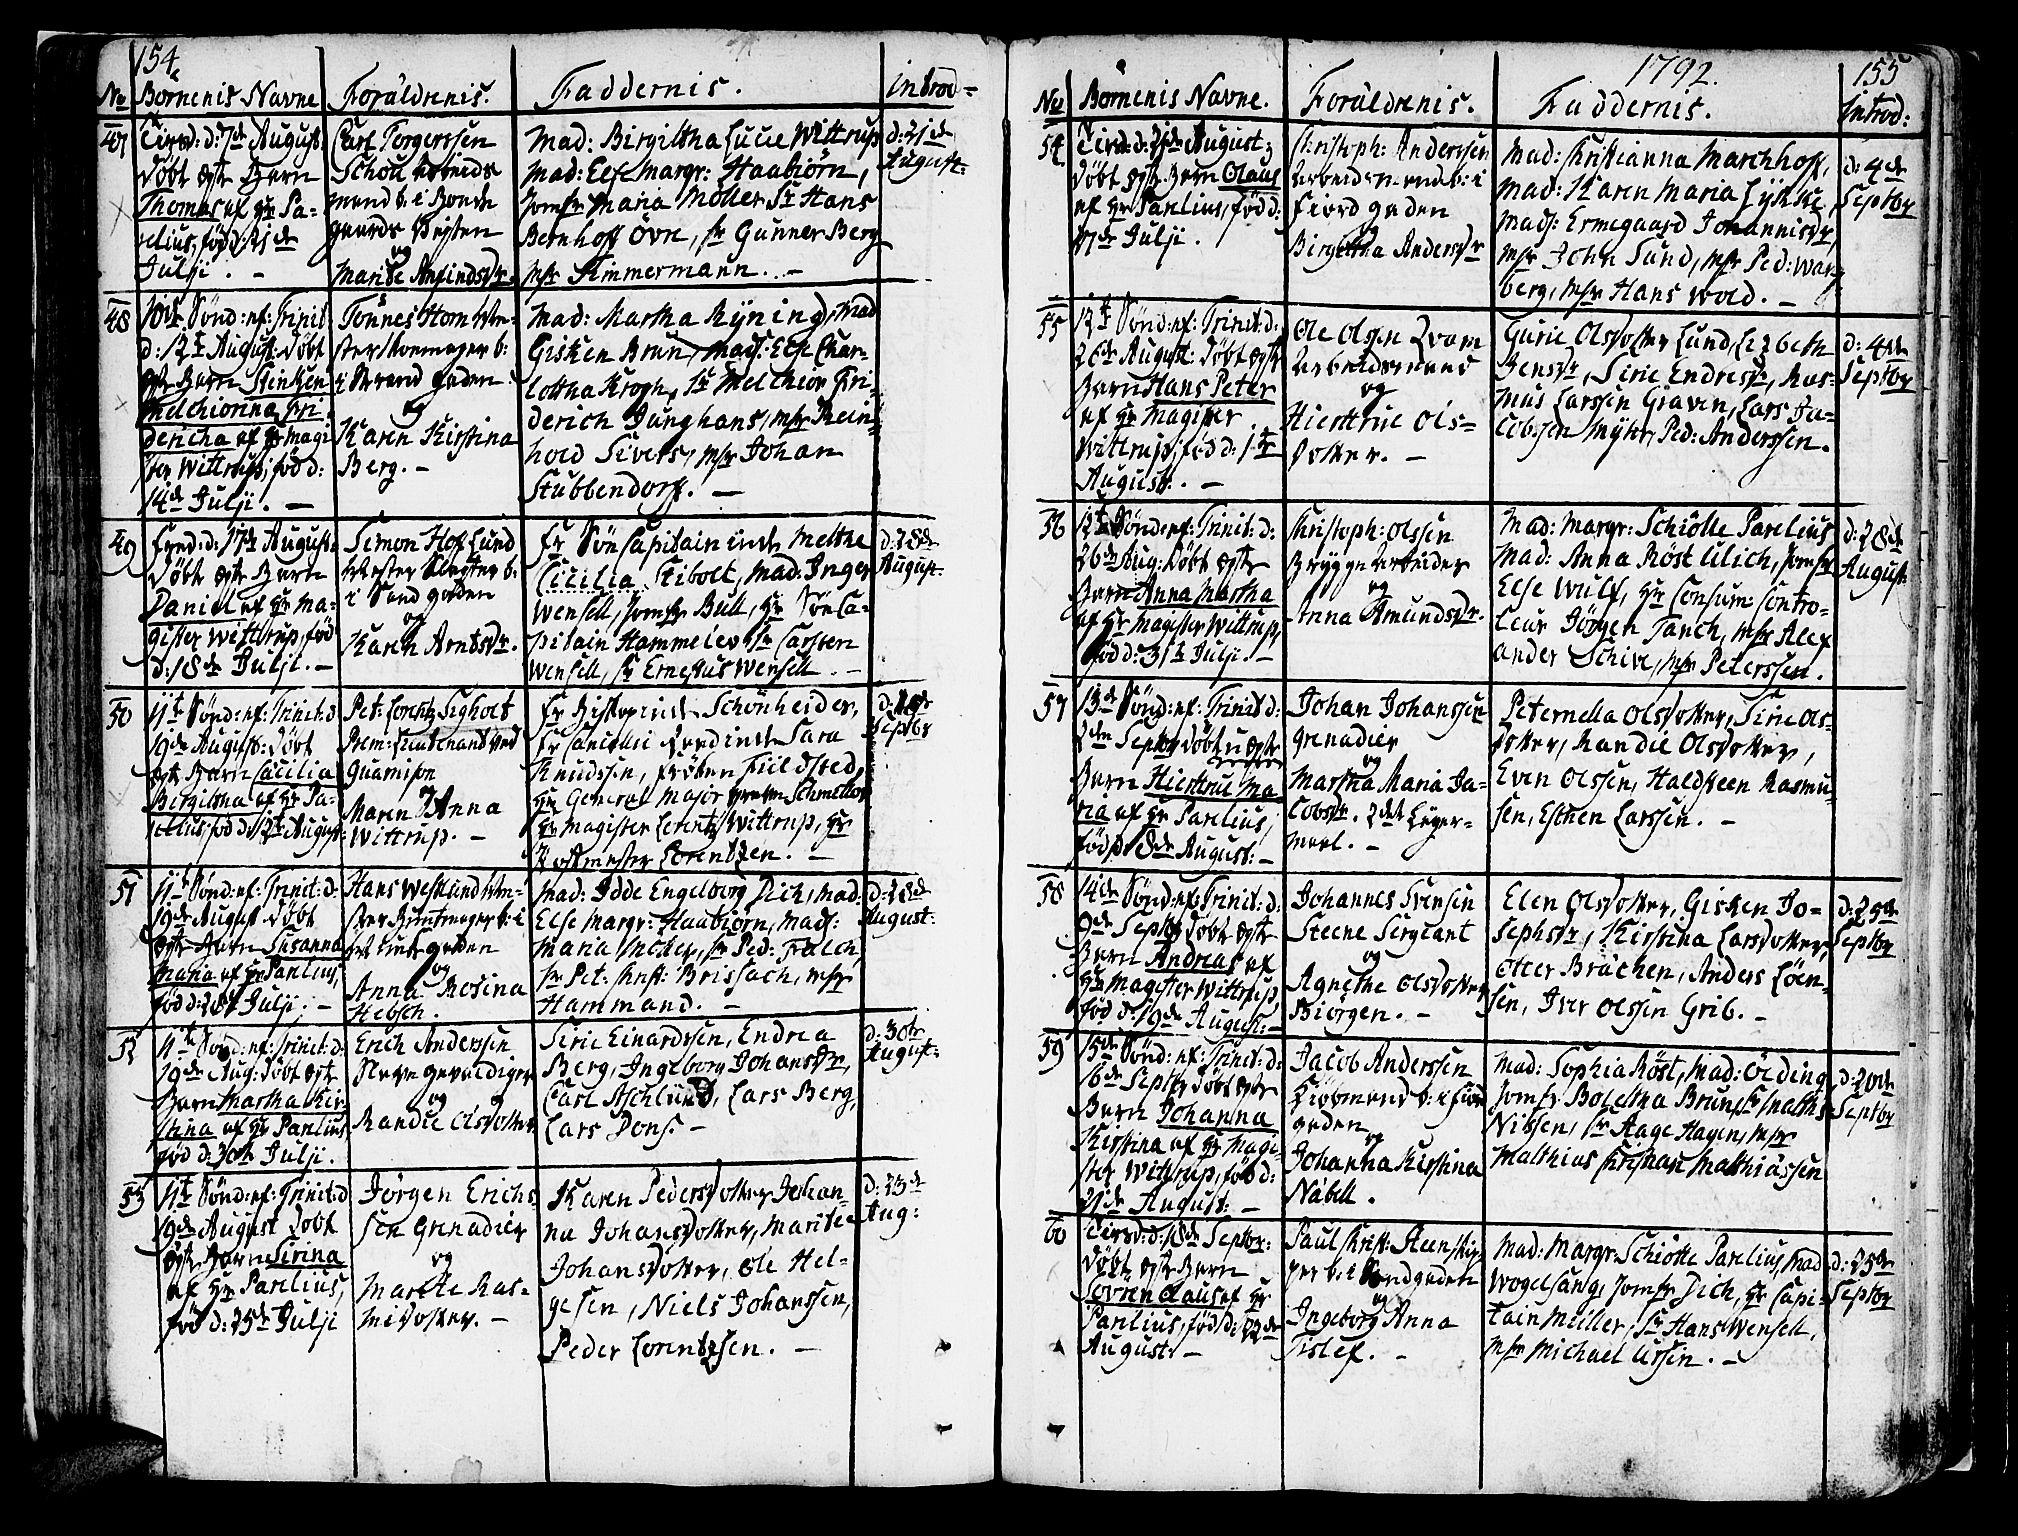 154.
No
Børnenis Navne
Forældrenis.
Faddernis.
Introd=
47
Tirsd: d: 7de August
døbt egte Barn
Thomas af Hr Pa-
relius, fød d: 21de
Julji. -
Carl Torgerssen
Schou Arbeids
mand b: i Bonde
gaards Vejten
og
Marite Amfindsdr.
Mad: Birgiltha Lucie Wittrup
Mad: Else Margr: Haabiørn,
Jomfr Maria Møller Sr Hans
Bernhoff Øvre, Sr Gunner Berg
Msr Timmermann. -
d: 21de
August:
48
10de Sønd: ef: Trinit
d: 12te August: døbt
egte Barn Stinken
Melchiorina Fri-
dericha af Hr Magi
ster Wittrup, fød d:
14de Julji. -
Tønnes Hom Me-
ster Skomager b:
i Strand gaden
og
Karen Kirstina
Berg. -
Mad: Martha Ryning, Mad
Gisken Brun, Mads: Else Char-
lottha Krogh, Sr Melchior Fri-
derich Junghans, Msr Rein-
hold Sivers, Msr Johan
Stubbendorff. -
49
Fred: d: 17de August:
døbt egte Barn
Daniel af Hr Ma-
gister Wittrup, fød
d: 18de Julji. -
Simon Hof Lund
Mester Slagter b:
i Sand gaden
og
Karen Arntsdr.
Fr Søe Capitaininde Melthe
Cicilia Stibolt, Mad: Inger
Wensell, Jomfr Bull, Hr Søe Ca-
pitain Hammelev Sr Carsten
Wensell, Sr Ernestus Wensell. -
d: 28de
August:
50
11te Sønd: ef: Trinit: d
19de August: døbt
egte Barn Cæcilia
Birgiltha af Hr Pa-
relius, fød d: 12te August:
Pet: Lorentz Sigholt
Prem: Lieutenand ved
Guarnison
og
Maren Anna
Wittrup. -
Fr Bispinde Schønheider,
Fr Cancellieraadinde Sara
Knudssen, Frøken Fieldsted,
Hr General Major von Schmettov
Hr Magister Lorentz Wittrup, Hr
Postmester Lorentzen. -
Septbr
51
11te Sønd: ef: Trinit: d:
19de August døbt
egte Barn Susanna
Maria af Hr Parelius,
fød d: 28de Julji. -
Hans Westlund Me-
ster Bundtmager b: i
gaden
og
Anna Rosina
Hebsch.
Mad: Idde Engelborg Dich, Mad:
Else Margr: Haabiørn, Mads:
Maria Møller, Sr Ped: Falch
Sr Pet: Krist: Brissach, Msr
Hammand. -
d: 28de
August:
52
11te Sønd: ef: Trinit: d:
19de Aug: døbt egte
Barn Martha Kir-
stina af Hr Parelius,
fød d: 30te Julji.
Erich Anderssen
Slave gevaldiger
og
Randie Olsdotter
Sirie Einardssen, Endrea
Berg, Ingeborg Johansdr,
Carl Aschlund, Lars Berg,
Lars Dons. -
d: 30te
August:
53
11te Sønd: ef: Trinit: d
19de August døbt
egte Barn Sirina
af Hr Parelius,
fød d: 25de Julji
Jørgen Erichs
sen Grenadier
og
Marite Ras-
musdotter. -
Karen Pedersdotter, Johan-
na Johansdotter, Marite
Johansdotter, Ole Hel-
gesen, Niels Johanssen,
Peder Lorentzsen. -
d: 23de
Aug:
1792.
155
No
Børnenis Navne.
Forældrenis.
Faddernis.
Introd:
54
Tirsd: d: 21de August:
døbt egte Barn Olaus
af Hr Parelius, fød d:
17de Julji.
Christoph: Anderssen
Arbeidsmand b: i
Fiord gaden
og
Birgitha Andersdr
Mad: Christianna Marchhoff,
Mad: Karen Maria Lykke
Mads: Ermegaard Johannisdr,
Msr John Sund, Msr Ped: War-
berg, Msr Hans Wold. -
d: 4de
Septbr
55
12te Sønd: ef: Trinit: d:
26de August: døbt egte
Barn Hans Peter
af Hr Magister
Wittrup, fød d: 1te
August: -
Ole Olssen Qvam
Arbeidsmand
og
Hierttrue Ols-
dotter. -
Gurie Olsdotter Lund, Lisbeth
Jensdr, Sirie Endresdr, Ras-
mus Larssen Graven, Lars Ja-
cobssen Myhr, Ped: Anderssen.
d: 4de
Septbr
56
12te Sønd: ef: Trinit: d:
26de Aug: døbt egte
Barn Anna Martha
af Hr Magister Wittrup,
fød d: 31te Julji. -
Christoph: Olssen
Brygge Arbeider
og
Anna Amundsdr.
Mad: Margr: Schiøtte Parelius
Mad: Anna Røst Lilich, Jomfr
Else Wulf, Hr Consum: Contro-
leur Jørgen Tanch, Msr Alex
ander Schive, Msr Peterssen.
d: 28de
August
57
13de Sønd: ef: Trinit d:
2den Septbr døbt u egte
Barn Hierttrue Ma
ria af Hr Parelius,
fød d: 8de August: -
Johan Johanssen
Grenadier
og
Martha Maria Ja-
cobsdr. 2det Leyer-
maal. -
Peternella Olsdotter, Sirie Ols-
dotter, Randie Olsdotter,
Even Olssen, Haldsteen Rasmu-
sen, Esthen Larssen. -
58
14de Sønd: ef: Trinit: d:
9de Septbr døbt egte
Barn Andreas af
Hr Magister Wittrup,
fød d: 19de August: -
Johannes Svensen
Steene Sergeant
og
Agnethe Olsdotter
Biørgen. -
Elen Olsdotter, Gisken Jo-
sephsdr, Kirstina Larsdotter,
Otter Bræchen, Anders Løen-
sen, Iver Olssen Grib. -
d: 25de
Septbr
59
15de Sønd: ef: Trinit: d:
16de Septbr døbt egte
Barn Johanna
Kirstina af Hr Magi-
ster Wittrup, fød d:
21de August: -
Jacob Anderssen
Kiøbmand b: i Fiord
gaden
og
Johanna Kirstina
Näbell.
Mad: Sophia Røst, Mad: Olding
Jomfr Boletha Brun, Sr Mathis
Nissen, Sr Aage Hagen, Msr
Matthias Christian Mathiassen
d: 20de
Septbr
60
Tirsd: d: 18de Septbr:
døbt egte Barn
Søvren Claus af Hr
Parelius, fød d: 22de
August: -
Paul Krist: Steenskip-
per b: i Sandgaden
og
Ingeborg Anna
Tislef. -
Mad: Margr: Schiøtte Parelius, Mad
Wogelsang, Jomfr Dich, Hr Capi-
tain Müller, Sr Hans Wensell,
Msr Michael Ussin. -
d: 25de
Septbr